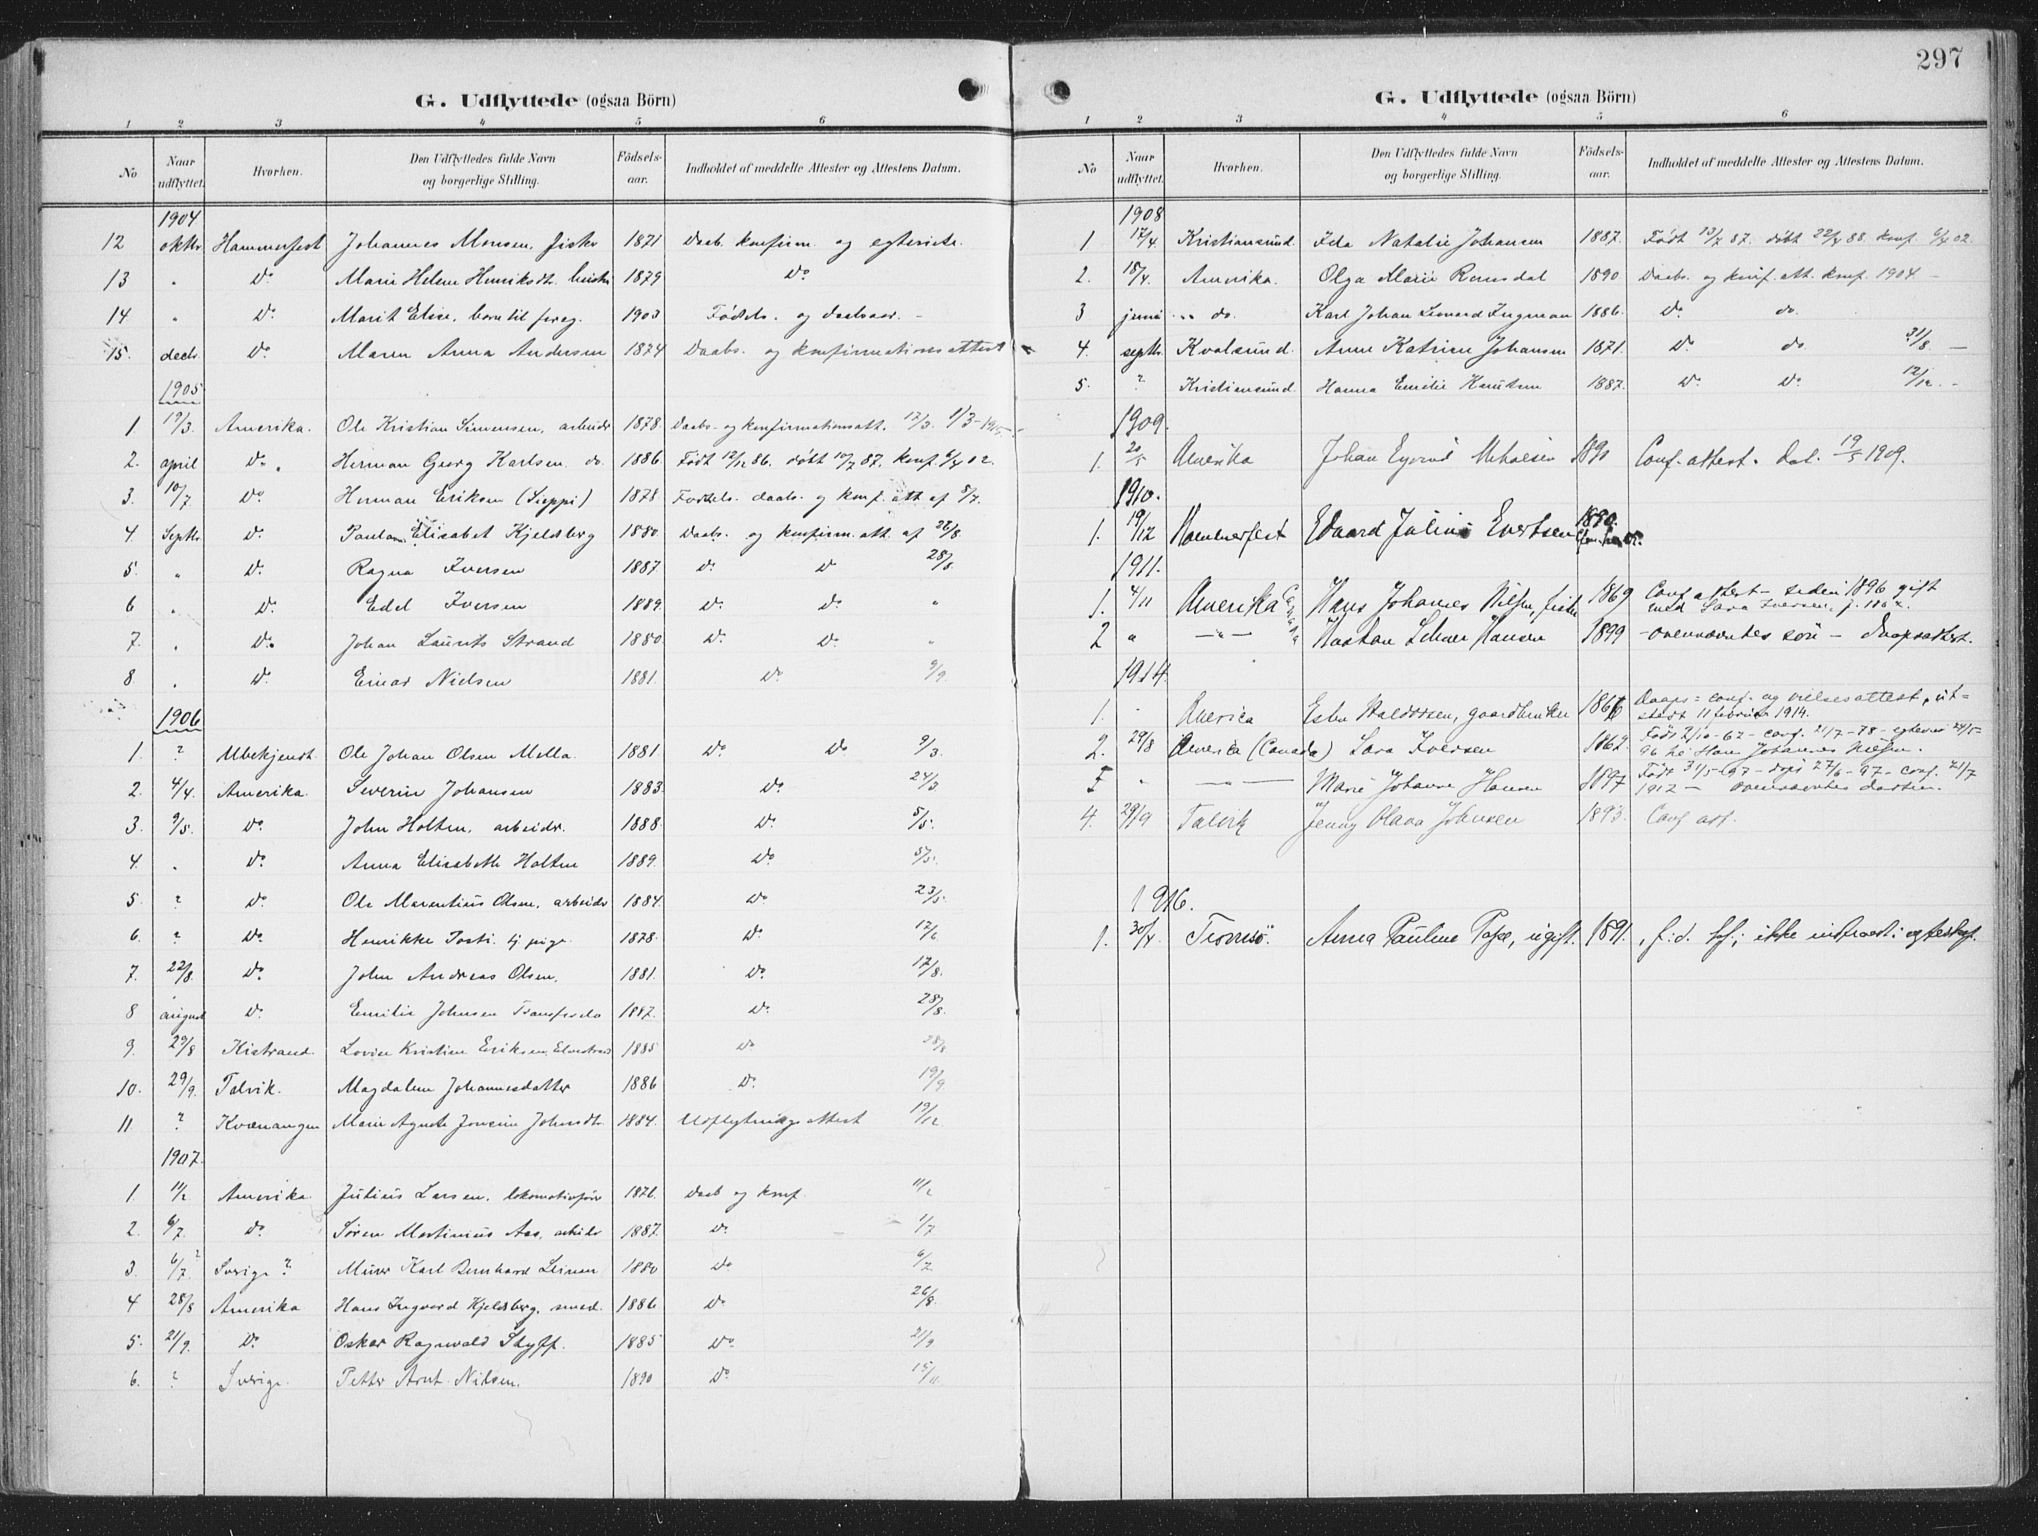 297
G. Udflyttede (ogsaa Börn)
1 2 3 4 5 6
No Naar udflyttet. Hvorhen. Den Udflyttedes fulde Navn og borgerlige Stilling. Födselsaar. Indholdet af meddelte Attester og Attestens Datum.
1904
12 oktbr. Hammerfest Johannes Monsen, fisker 1871 Daab. konfirm. og egteviets.
13 " Do Marie Helene Henriksdtr. hustru 1879 Do
14 " Do Marit Elise, barn til foreg. 1903 Fødsels. og daabsatt. -
15. decbr. Do Maren Anna Andersen 1874 Daabs. og konfirmationsattest
1905
1. 19/3. Amerika. Ole Kristian Simonsen, arbeider 1878. Daabs- og konfirmationsatt. 17/3. 1/3-1905.
2. april Do " Herman Georg Karlsen do. 1886. Født 12/12 86. døbt 10/7 87. konf. 6/4 02.
3. 10/7 Do Herman Eriksen (Sieppi) 1878. Fødsels. daabs. og konf. att af 8/7.
4 Septbr. Do Paula Elisabet Kjeldsberg 1880. Daabs. og konfirm. att. af 26/8
5. " Do Ragna Iversen 1887. Do Do 28/8.
6 " Do Edel Iversen 1889. Do Do "
7. " Do. Johan Laurits Strand 1880 Do Do "
8 . Do Einar Nielsen 1881. Do 9/9.
1906
1. ? Ubekjendt. Ole Johan Olsen Mella 1881. Do Do 9/3.
2. 4/4. Amerika. Severin Johansen 1883. Do 24/3
3. 9/5. Do John Holten, arbeider. 1888. Do 5/5.
4. . Do Anna Elisabeth Holten 1889. Do 5/5.
5. ? Do Ole Marentius Olsen, arbeider 1884. Do 23/5.
6. ? Do Henrikke Posti tj pige. 1878. Do 12/6
7. 22/8. Do John Andreas Olsen. 1881. Do 17/8.
8 august Do Emilie Johnsen 1887. Do 28/8.
9. 29/8 Kistrand. Lovise Kristine Eriksen, Elvestrand 1885 Do 28/8
10. 29/9. Talvik. Magdalene Johannesdatter 1886 Do 19/9.
11. ? Kvænangen Marie Agnete Johnsdtr. 1884. Udflytnings attest 19/12
1907.
1. 11/2 Amerika Julius Larsen, lokomotivfører 1876. Daab og konf. 11/2
2. 6/7. do Søren Martinius Aas, arbeider 1887. Do 1/7
3. 6/7 ? Sverige ? Murer Karl Bernhard Leinan 1880 Do 6/7
4 28/8 Amerika Hans Ingvard Kjeldsberg, smed. 1886. Do 26/8.
5. 21/9. Do Oskar Ragnvald Styff. 1885 Do 21/9
6. ? Sverige. Petter Arnt Nilsen. 1890 Do 15/11
G. Udflyttede (ogsaa Börn)
1 2 3 4 5 6
No Naar udflyttet. Hvorhen. Den Udflyttedes fulde Navn og borgerlige Stilling. Födselsaar. Indholdet af meddelte Attester og Attestens Datum.
1908
1. 12/4. Kristiansund. Ida Natalie Johansen 1887. Født 13/7 87. døbt 22/4 88. konf. 6/4 02.
2. 18/4. Amerika. Olga Marie Romsdal 1890 Daabs. og konf. att. konf. 1904. -
3 juni " do. Karl Johan Leonard Ingman 1886. Do do.
4. septbr. Kvalsund. Anne Katrine Johansen 1871. Do do. 31/8. -
5. ? Kristiansund. Hanna Emilie Knutsen 1887. Do Do 12/12. -
1909.
1. 20/5 Amerika Johan Eyvind Mikalsen 1890 Conf. attest. dat. 19/5 1909.
1910.
1. 19/12 Hammerfest Edvard Julius Evertsen 1890.
1911.
1. 4/11 Amerika Canada Hans Johannes Nilsen, fisker 1869 Conf attest - siden 1896 gift
med Sara Iversen, f. 1862.
2 " -"- Haakon Hansen 1899 - ovennævntes søn - daapsattest.
1914.
1. - America Esten Haldorsen, gaardbruker 1866 Daaps= conf. og vielsesattest, ut-
stedt 11 februar 1914.
2. 29/8 America (Canada) Sara Iversen 1862. Født 2/10-62 - conf. 21/7-78 - egteviet 24/5-
96 til Hans Johannes Nilsen.
3 " -"- Marie Johanne Hansen 1897 Født 31/5-97 - døpt 27/6-97 - conf. 21/7
1912 - ovennævntes datter.
4. 29/9 Talvik Jenny Olava Johnsen 1893. Conf att.
1916.
1. 30/4. Tromsø. Anna Pauline Pape, ugift. 1891. , f: d. kf.; ikke indtraadt i egteskap.